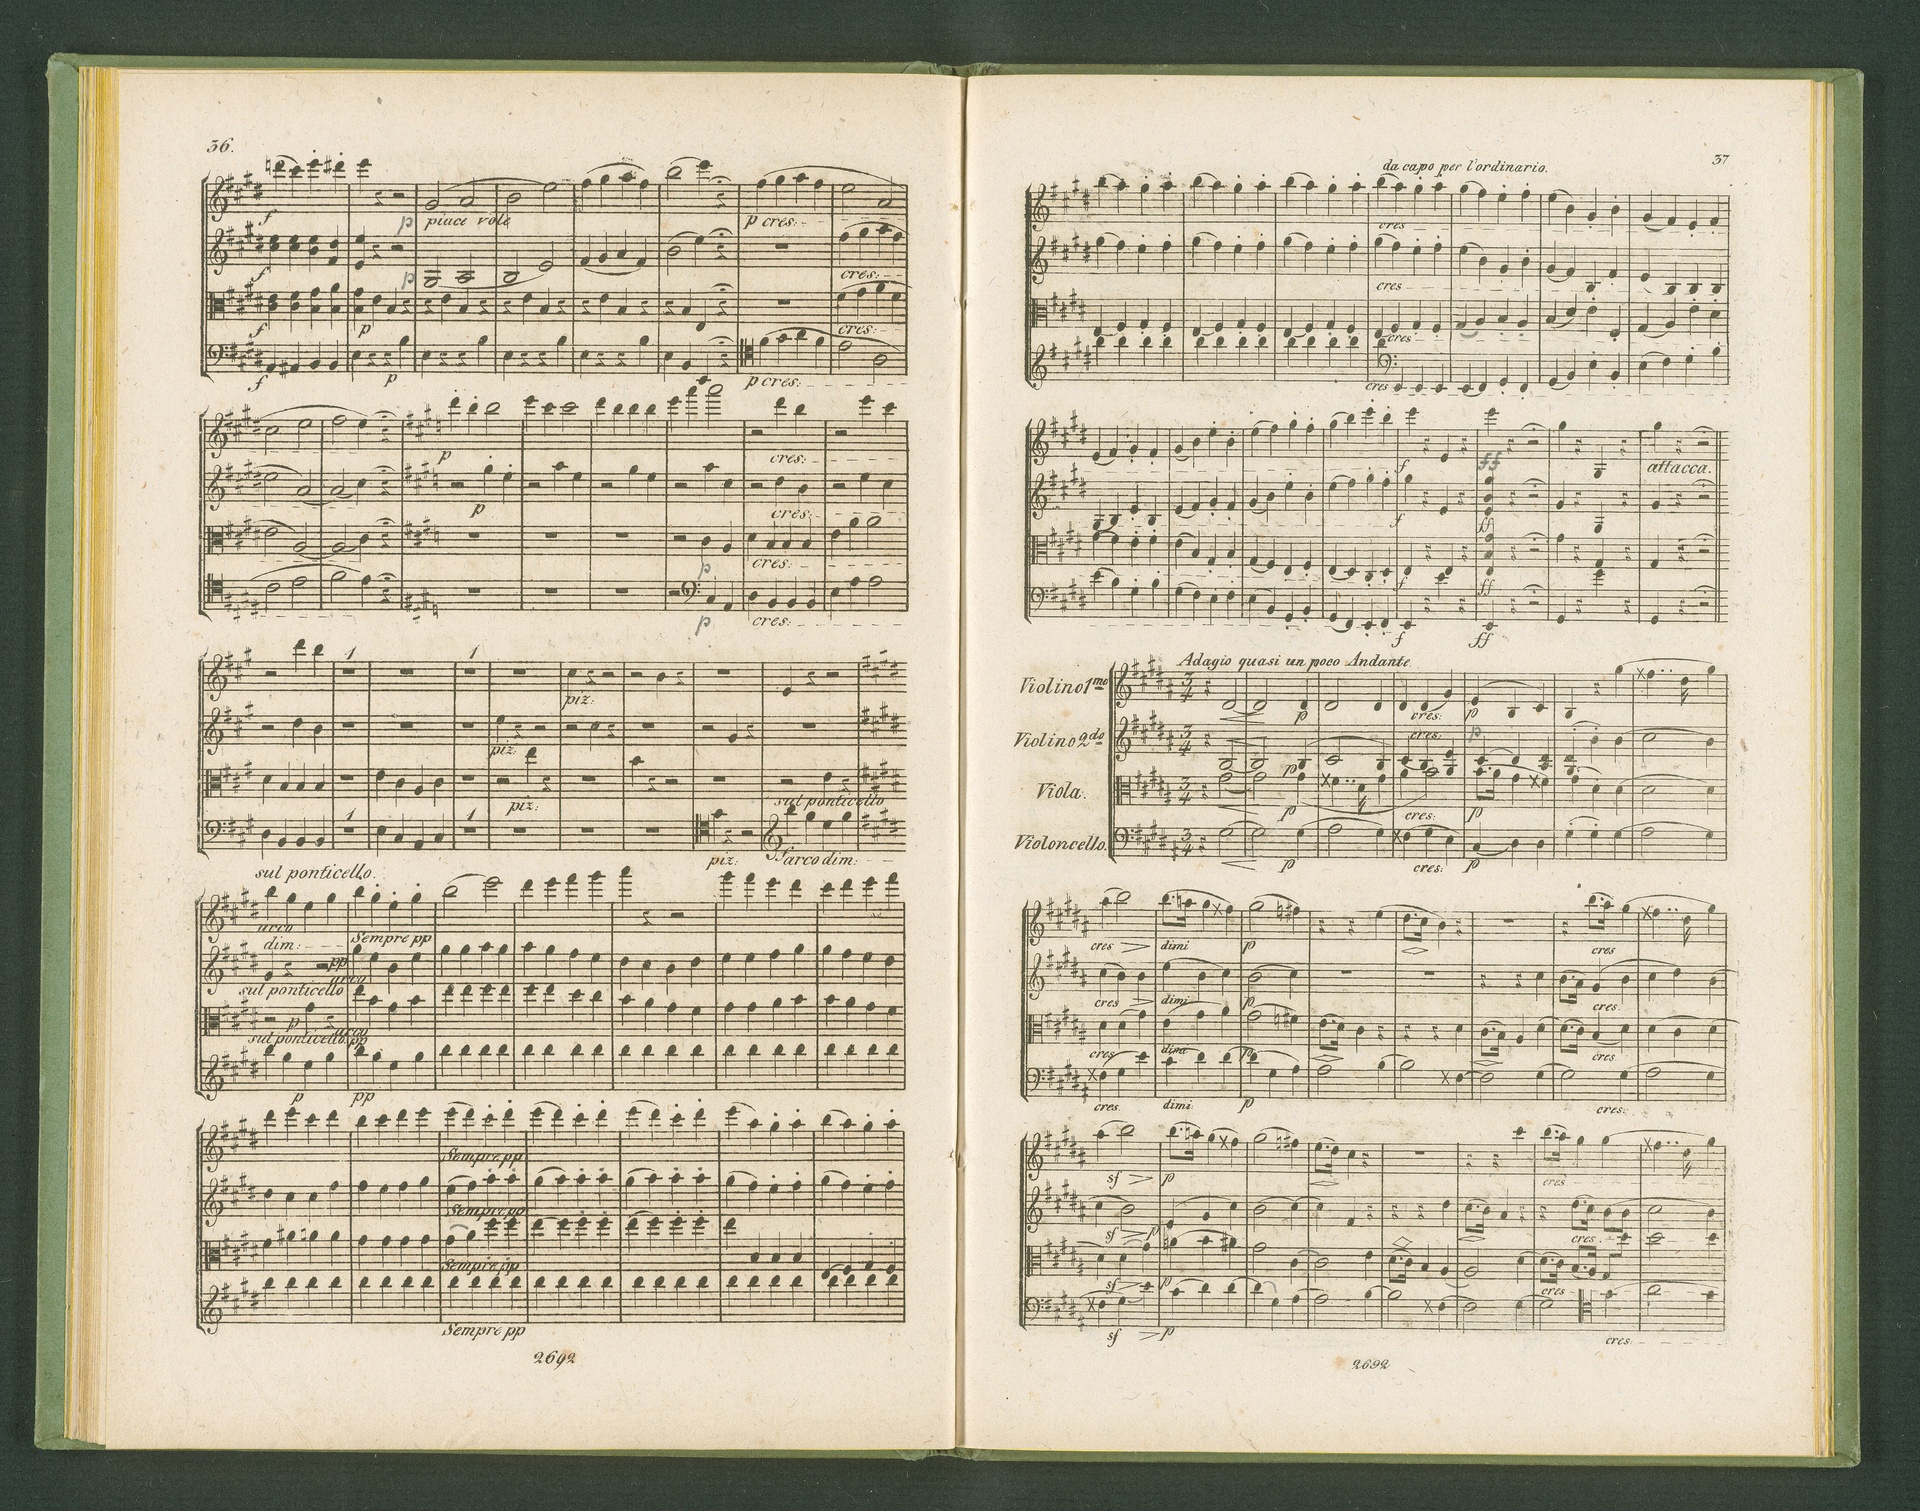 36.
f
p piace vole
p cres:
f
p
cres:
f
p
cres:
f
p
p cres:
p
cres:
p
cres:
p
cres:
p
cres:
1
1
piz:
piz:
1
1
piz:
sul ponticello
1
1
piz:
f arco dim:
sul ponticello.
arco
dim:
Sempre pp
pp
arco
sul ponticello
p
arco
sul ponticello pp
p
pp
Sempre pp
Sempre pp
Sempre pp
Sempre pp
2692
37
da capo per l'ordinario.
cres
cres
cres
cres
f
ff
attacca.
f
ff
f
ff
f
ff
Adagio quasi un poco Andante
Violino 1mo
3/4
p
cres:
p
Violino 2do
3/4
cres:
p
p
Viola.
3/4
p
cres:
p
Violoncello.
3/4
p
cres:
p
cres
dimi
p
cres
cres
dimi
p
cres
cres
dimi
p
cres
cres
dimi
p
cres:
sf
p
cres
sf
p
cres
sf
p
cres
sf
p
cres:
2692